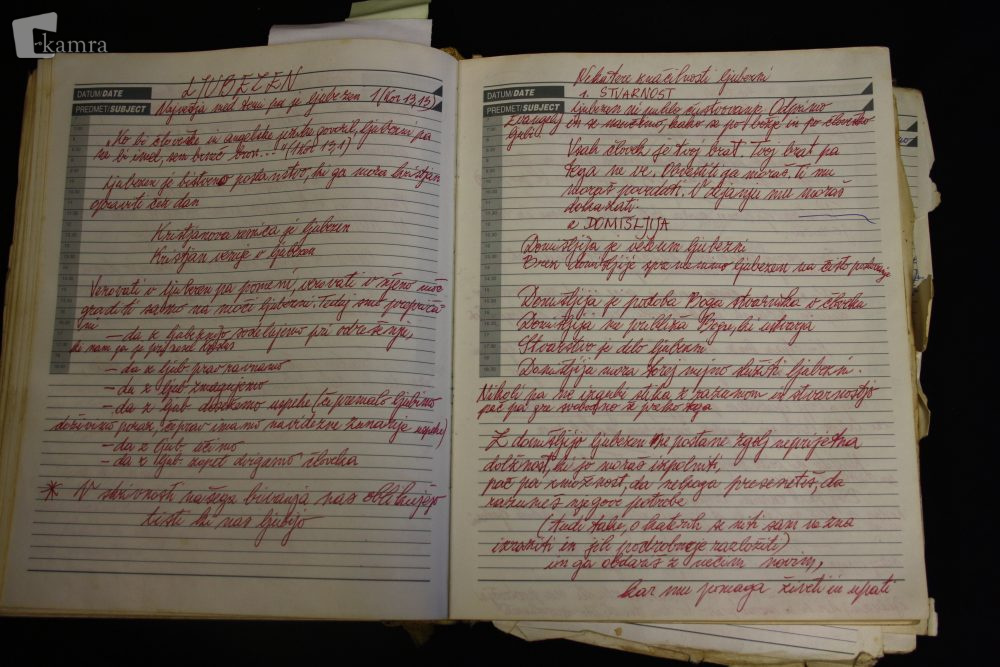 kamra
LJUBEZEN
DATUM/DATE
PREDMET/SUBJECT
Največja med temi pa je ljubezen 1(Kor 13,13)
"Ko bi človeške in angelske jezike govoril, ljubezni pa
ne bi imel, sem brneč bron..." (1 Kor 13,1)
Ljubezen je bistveno poslanstvo, ki ga mora kristjan
opraviti čez dan
Kristjanova resnica je ljubezen
Kristjan veruje v ljubezen
Verovati v ljubezen pa pomeni, verovati v njeno moč
graditi samo na moči ljubezni. Torej smo prepriča-
ni
- da z ljubeznijo sodelujemo pri odrešenju,
ki nam ga je prinesel Kristus
- da z ljub prav ravnamo
- da z ljub zmagujemo
- da z ljub dosežemo uspehe (če premalo ljubimo
doživimo poraz, čeprav imamo navidezne zunanje uspehe)
- da z ljub. učimo
- da z ljub zopet dvigamo človeka
* V skrivnosti našega bivanja nas oblikujejo
tisti ki nas ljubijo
Nekatere značilnosti ljubezni
1. STVARNOST
DATUM/DATE
PREDMET/SUBJECT
Ljubezen ni neko čustvovanje. Odprimo
Evangelij in se naučimo, kako se po božje in po človeško
ljubi
Vsak človek je tvoj brat. Tvoj brat pa
tega ne ve. Obvestiti ga moraš. Ti mu
moraš povedati. V dejanju mu moraš
dokazati.
2 DOMIŠLJIJA
Domišljija je velikim ljubezni
Brez domišljije spremenimo ljubezen na čisto
Domišljija je podoba Boga stvarnika v človeku
Domišljija me približa Bogu, ki ustvarja
Stvarstvo je delo ljubezni
Domišljija mora torej nujno služiti ljubezni.
Nikoli pa ne izgubi stika z razumom in stvarnostjo
pač pa gre svobodno z preko tega
Z domišljijo ljubezen ne postane zgolj neprijetna
dolžnost, ki jo moraš izpolniti,
pač pa zmožnost, da nekoga presenetiš, da
razumeš njegove potrebe
(tudi take, o katerih se niti sam ne zna
izraziti in jih podrobneje razložiti)
in ga obdariš z nečim novim,
kar mu pomaga živeti in upati